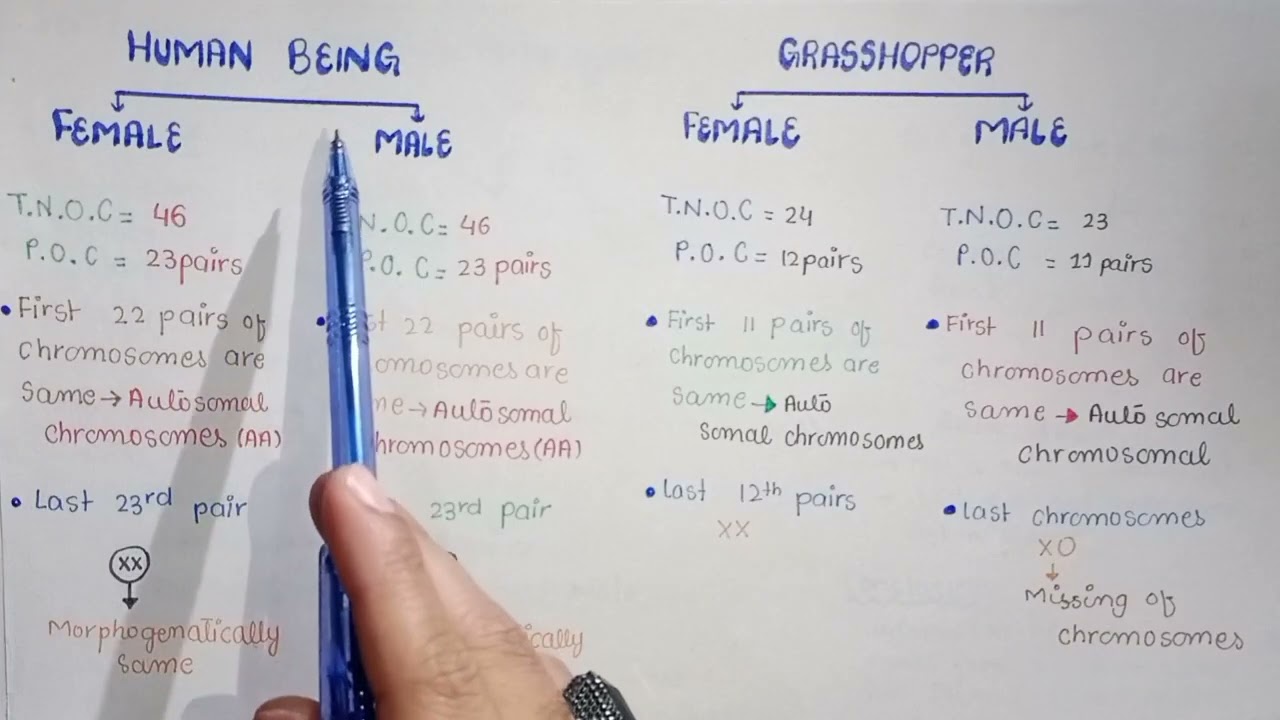 HUMAN BEING
FEMALE
MALE
T.N.O.C = 46
P.O.C = 23pairs
• First 22 pairs of
chromosomes are
Same → Autosomal
chromosomes (AA)
• Last 23rd pair
XX
Morphogenatically
same
N.O.C = 46
P.O.C = 23 pairs
22 pairs of
omosomes are
→ Autosomal
hromosomes (AA)
23rd pair
ically
GRASSHOPPER
FEMALE
MALE
T.N.O.C = 24
P.O.C = 12pairs
• First 11 pairs of
chromosomes are
Same → Auto
somal chromosomes
• Last 12th pairs
XX
T.N.O.C = 23
P.O.C = 11 pairs
• First 11 pairs of
chromosomes are
same → Autosomal
chromosomal
• last chromosomes
XO
Missing of
chromosomes